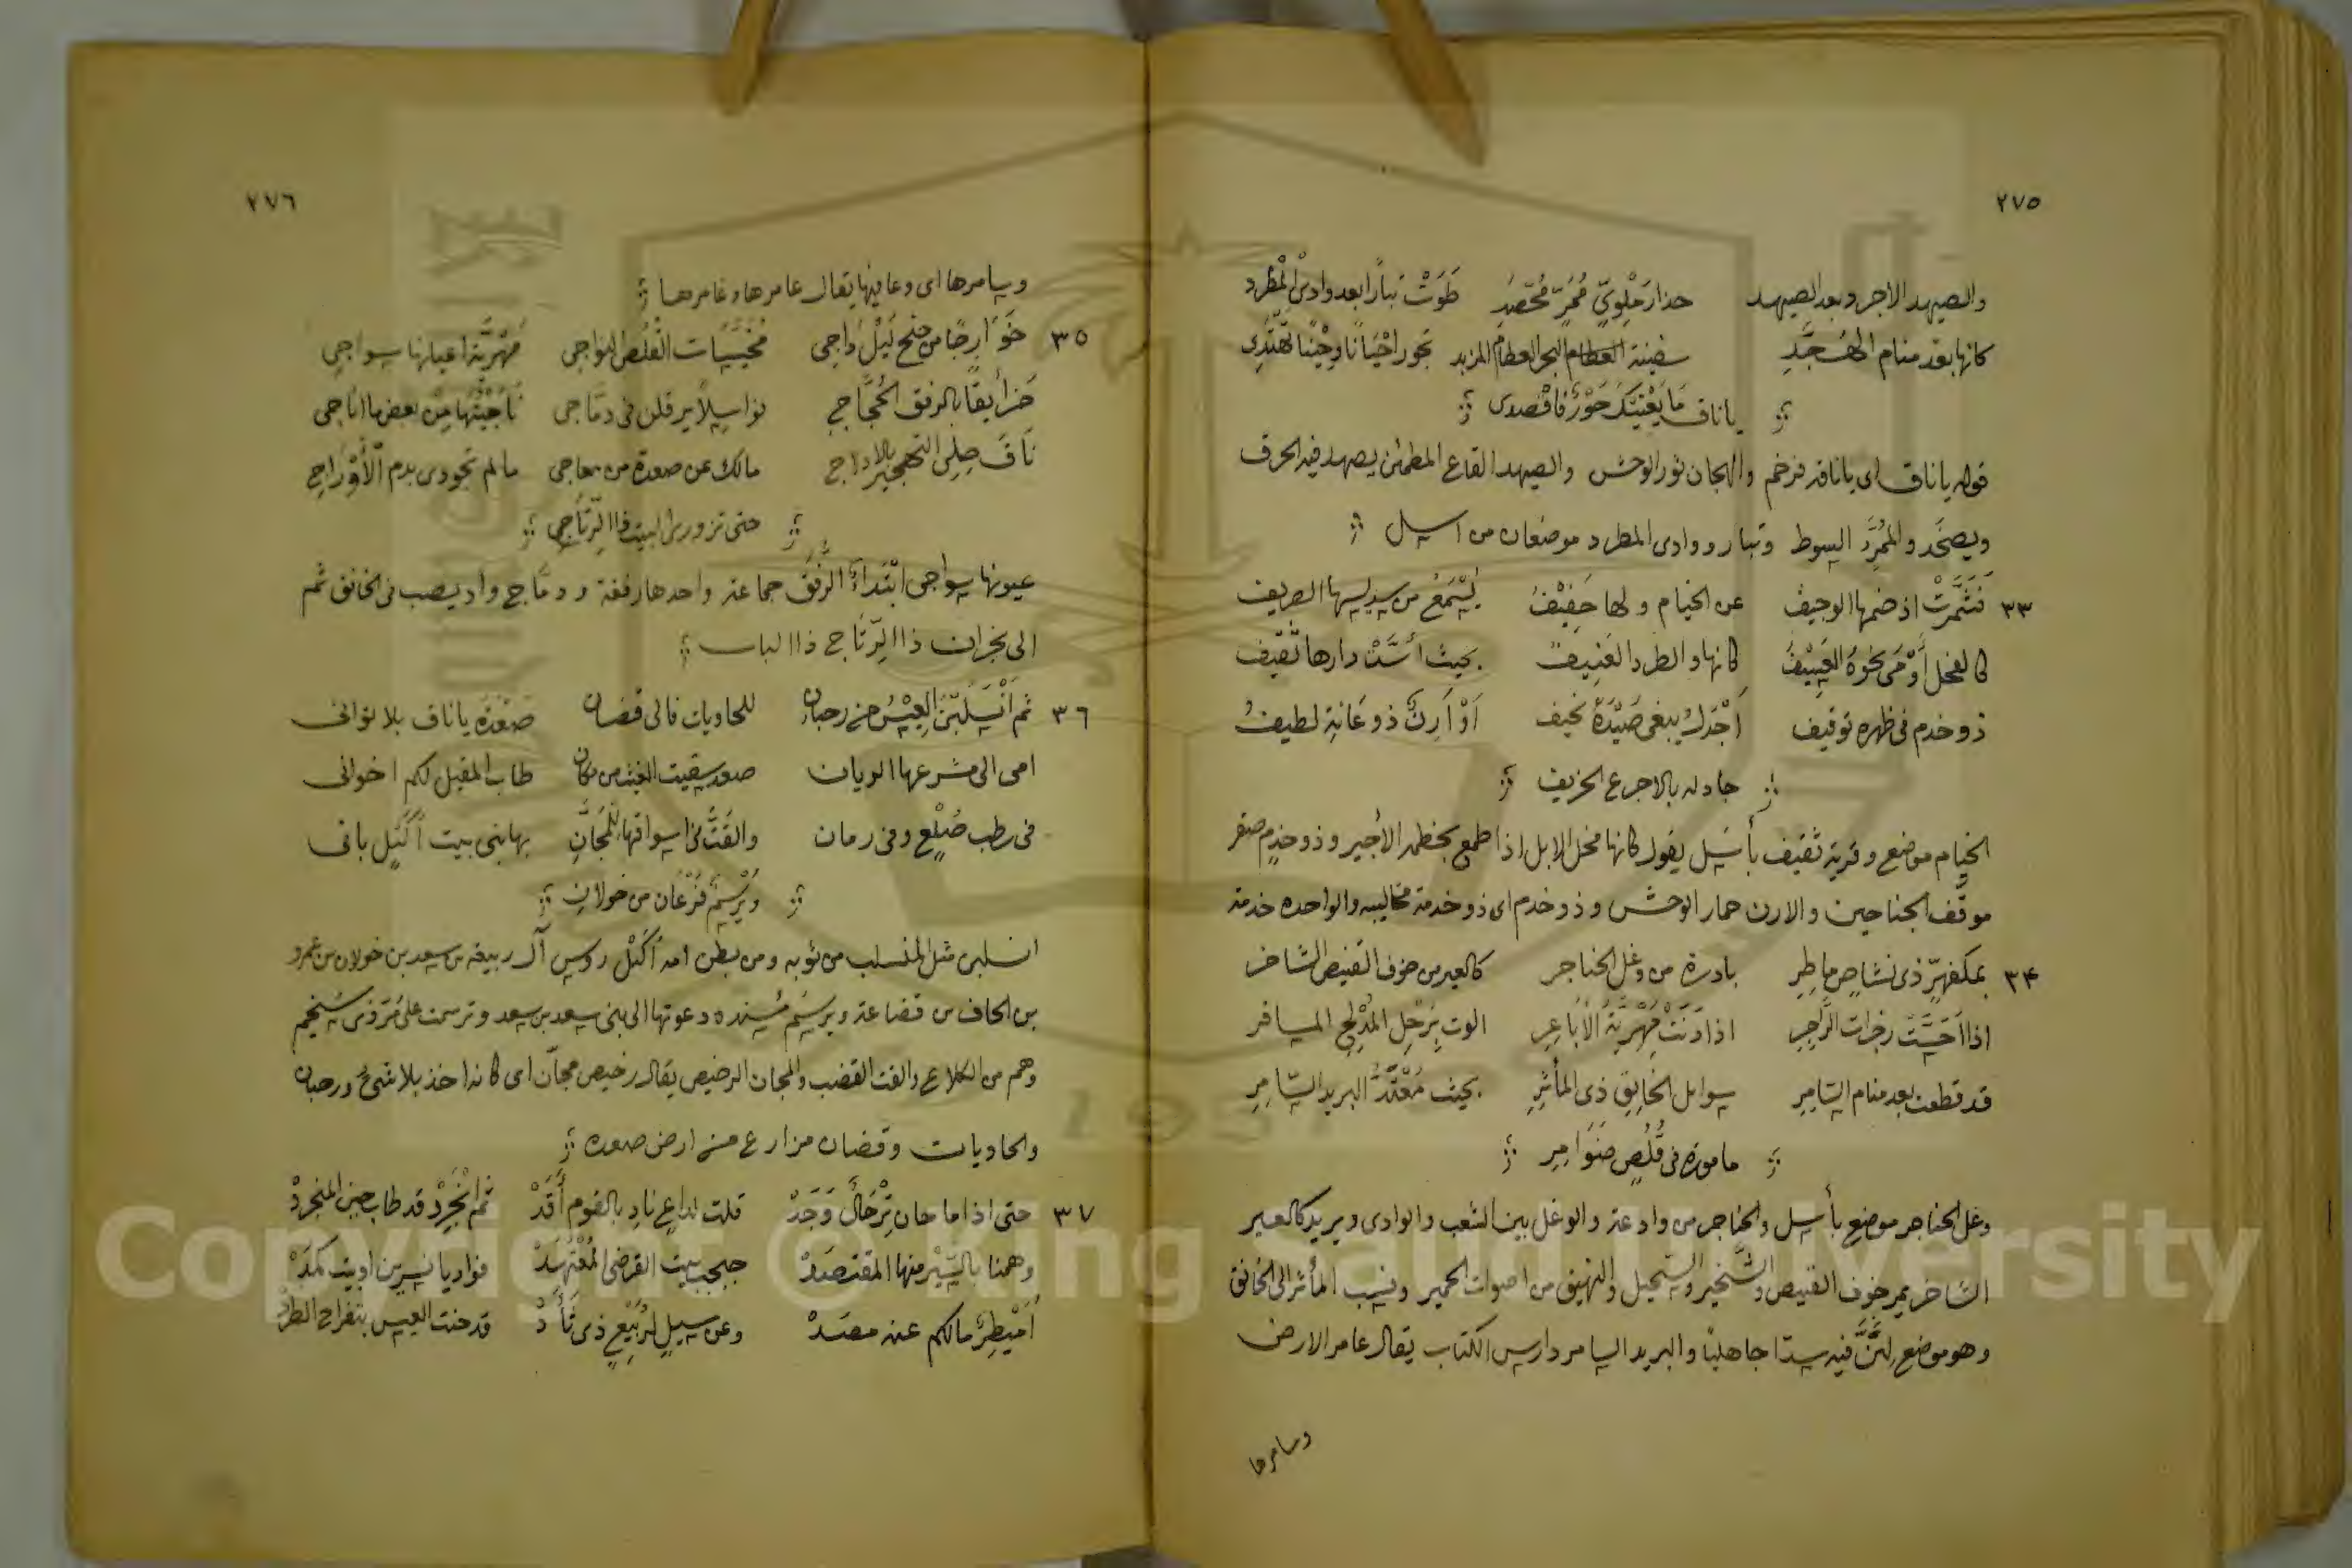 ٢٧٥
والصيهد الاجرد بعد الصيهد حذار مَلْوِيّ مُمَرّ مُحْصَدِ طَوَتْ تبارًا بعد وادى المطرد
كانها بعد منام الهُجَّدِ سفينة البحر العظام المزبد تجور احْيَانًا وحِيْنًا تهتدى
يا ناق مَا يَغْنِيَك جَوْرٌ فاقْصدى
قوله يا ناق اى يا ناقة فرخم والهجان ثور الوحش والصيهد القاع المطمئن يصهد فيه الحرف
ويصخد والمُمَرُّ السوط وتبار ووادى المطرد موضعان من اسل
٣٣ فَشَمَّرَتْ اذ ضمها الوجيف عن الخيام ولها حَفِيْفُ يُسْمَعُ من سديسها الصريف
كالفحل أَوْمَى نحوهُ العَسِيْفُ كانها والطرد العَنِيفُ بحيث أَسَّتْ دارها ثقيف
ذو خدم فى ظهره توقيف أجْدَلُ يبغى صَيْدَهُ نحيف أَوْ أَرِنٌ ذو عَانةٍ لطيفُ
جاد له بالاجرع الخريف
الخيام موضع وقرية ثقيف بأسَل يقول كانها فحل الابل اذا طمع بخطمه الأجير وذو خدم صقر
موقّف الجناحين والارن حمار الوحش وذو خدم اى ذو خدمة مخاليبه والواحده خدمة
٣٤ بمكفهرّ ذى نشاص ماطِرِ بادرة من وغل الحناجر كالعير من خوف القنيص الشاخر
اذا احَسَّتْ زجرات الزّاجِرِ اذا دَنَتْ مُهْرِيَّةُ الأباعِرِ الوت بِرَحْلِ المُدْلِجِ المسافر
قد قطعت بعد منام السّامِرِ سوابل الخَانِقِ ذى المأثِرِ بحيث مُعْتَدُّ البريد السّامِرِ
مامورة فى قُلُصٍ ضَوَامِرِ
وغل الحناجر موضع بأسل والحناجر من وادعة والوغل بين الشعب والوادى ويريد كالعير
الشاخر يمر خوف القنيص والشَّخير والسّحيل والنهيق من اصوات الحمير ونسب المأثر الى الخانق
وهو موضع لانَّ فيه سدّا جاهليًا والبريد السامر دارس الكتاب يقال عامر الارض
وسامرها
٢٧٦
وسامرها اى وعافيها يقال عامرها وغامرها
٣٥ خَوَارِجًا من جنح لَيْلٍ داجى مُخَيَّسَات القُلُصِ النواجى مَهْرِيَّة اعيانها سواجى
حَزَائِقًا بالرفق الحُجَّاجِ نواسلًا يرقلن فى دمّاجى نَاجَيْتُهَا مِنْ بعض ما اناجى
نَاقَ صِلِى التهجير بالادلاج مالك عن صعدة من معاجى ما لم تجودى بدم الأوْدَاجِ
حتى تزورى البيت ذا الرِّتَاجِ
عيونها سواجى ابْتَدَاءً الرُّفَق جماعة واحدها رفقة ودمّاج واد يصب فى الخانق ثم
الى نجران ذا الرِّتَاج ذا الباب
٣٦ ثم انْسَلَبْنَ العِيْسُ من رحبان للحاويات فالى قضان صَعْدَة يا ناق بلا توانى
امى الى مشرعها الريان صعد سقيت الغيث من مكان طاب المقيل لكم اخوانى
فى رطب ضُلَّع وفى رمان والقَتُّ فى اسواقها المَجَّانِ بها بنى بيت أكَيْلٍ بانى
ويُرْسَمٌ فَرْعَان من خولان
انسلبن مثل المنسلب من ثوبه ومن بطن امه أكَيْل روس آل ربيعة بن سعد بن خولان بن عمرو
بن الحاف بن قضاعة ويرسَم مُسنده دعوتها الى بنى سعد بن سعد وترسمت على مَرّ ذى سُخيم
وهم من الكلاع والقت القضب والمجان الرخيص يقال رخيص مجّان اى كانه اخذ بلا شئ ورحبان
والحاويات وقضان مزارع من ارض صعده
٣٧ حتى اذا ما حان تِرْحَالٌ وَجَدْ قلت لداعٍ نادِ بالقوم أَقَدْ ثم انْجَرِدْ قد طاب حين المنجردْ
وهمنا بالسَّيْر منها المقتصَدْ جبجب بيت القرضى المُعْتَهَدْ فواديا نسرين اوبيت كمَدْ
أُمَيْطِرٌ مالكم عنه مصَدْ وعن سبيلٍ لرُبَيْعٍ ذى ثَأَدْ قد حنت العيس بتفراح الطَرَدْ